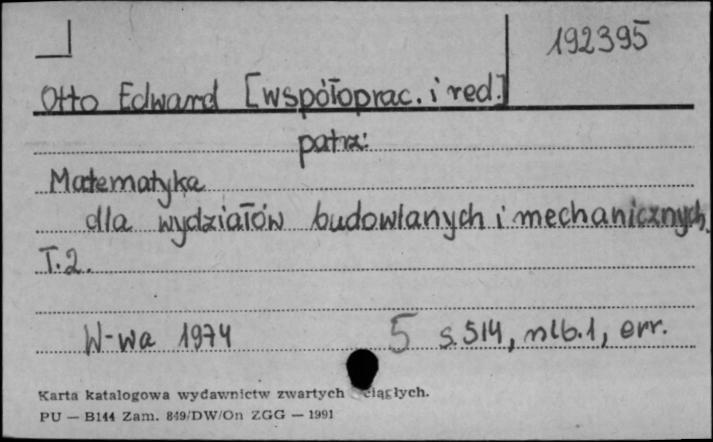 192395
Otto Edward [współoprac. i red.]
patrz:
Matematyka
dla wydziałów budowlanych i mechanicznych.
T.2.
W-wa 1974 5 s. 514, nlb.1, err.
Karta katalogowa wydawnictw zwartych ciągłych.
PU — B144 Zam. 849/DW/On ZGG — 1991